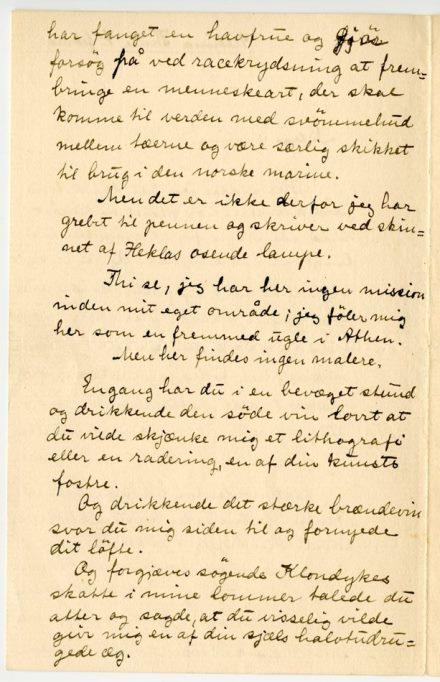 har fanget en havfrue og gjös
forsög på ved racekrydsning at frem=
bringe en menneskeart, der skal
komme til verden med svömmehud
mellem tæerne og være særlig skikket
til brug i den norske marine.
Men det er ikke derfor jeg har
grebet til pennen og skriver ved skin=
net af Heklas osende lampe.
Thi se, jeg har her ingen mission
inden mit eget område; jeg föler mig
her som en fremmed ugle i Athen.
Men her findes ingen malere.
Engang har du i en bevæget stund
og drikkende den söde vin lovet at
du vilde skjænke mig et lithografi
eller en radering, en af din kunsts
fostre.
Og drikkende det stærke brændevin
svor du mig siden til og fornyede
dit löfte.
Og forgjæves sögende Klondykes
skatte i mine lommer talede du
atter og sagde, at du visselig vilde
giv mig en af din sjæls halvtudru=
gede æg.